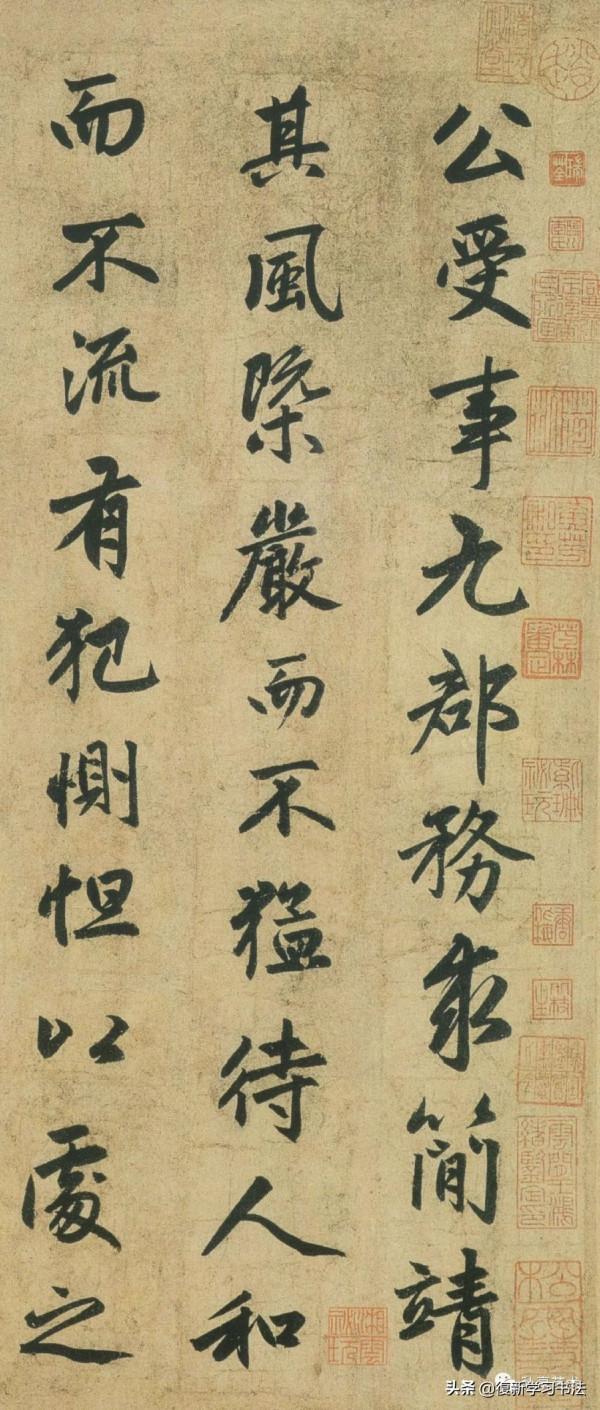 公受事九郡務求簡靖
其風槩嚴而不猛待人和
而不流有犯惻怛以處之
頭条 @復新学习书法